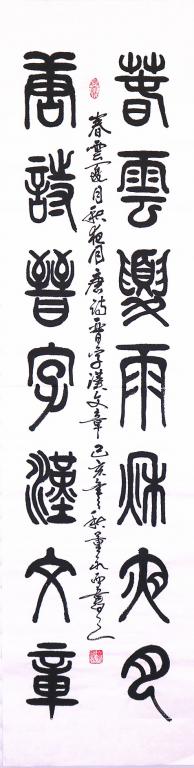 春雲夏雨秋夜月
春雲夏月秋夜月唐诗晋字漢文章己亥年秋書之
唐詩晉字漢文章